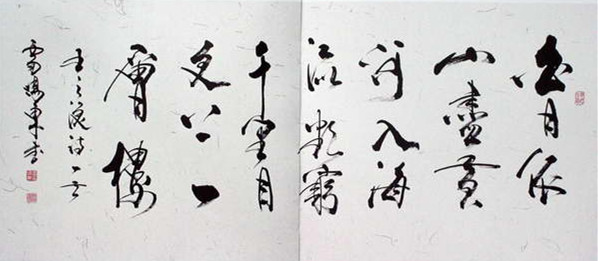 白日依
山盡黃
河入海
流欲窮
千里目
更上一
層樓
王之渙詩一首